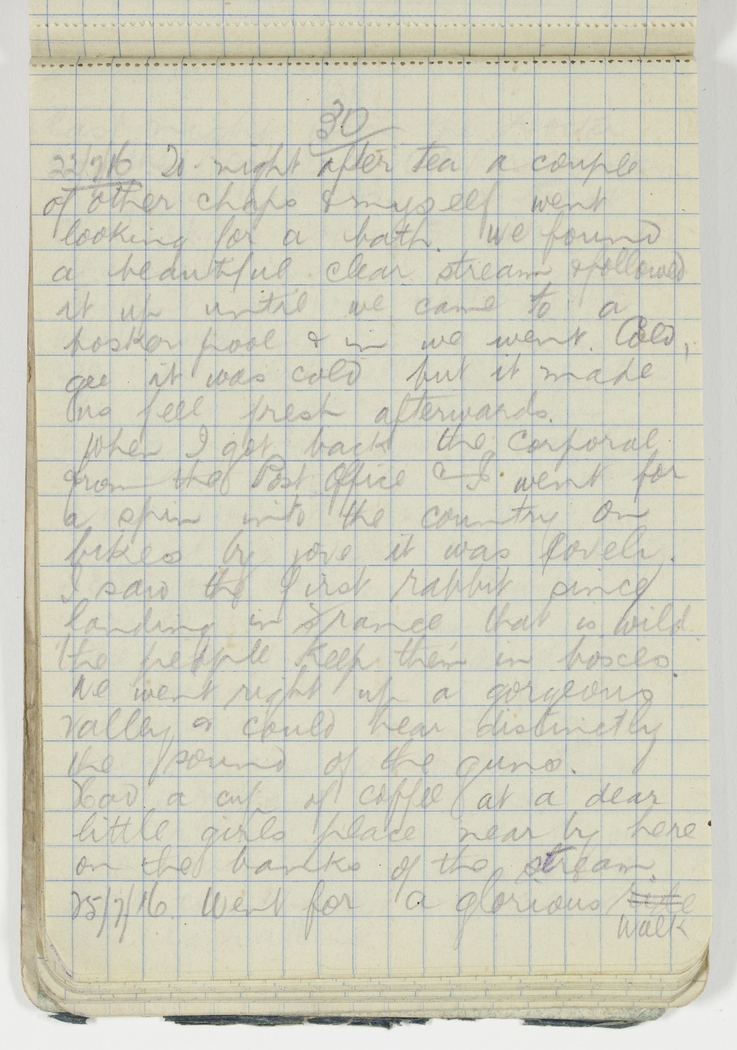 30
23/7/16 To-night after tea a couple
of other chaps & myself went
looking for a bath. We found
a beautiful clear stream & followed
it up until we came to a
bosker pool & in we went. Cold,
gee it was cold but it made
us feel fresh afterwards.
When I got back the corporal
from the Post Office & I went for
a spin into the country on
bikes by jove it was lovely.
I saw the first rabbit since
landing in France that is wild
the people keep them in boxes.
We went right up a gorgeous
valley & could hear distinctly
the sound of the guns.
Had a cup of coffee at a dear
little girls place near by here
on the banks of the stream.
25/7/16. Went for a glorious
walk